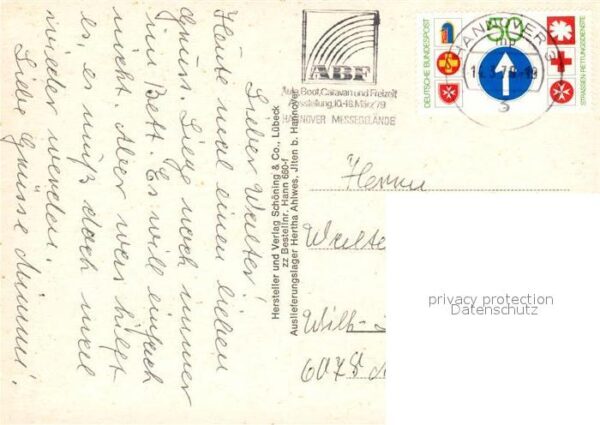 Lieber Walter!
Heute mal einen lieben
Gruss. Liege noch immer
im Bett. Es will einfach
nicht. Aber was hilft
es, es muß doch mal
wieder werden.
Liebe Grüsse
Hersteller und Verlag Schöning & Co., Lübeck
zz Bestellnr. Hann 660-f
Auslieferungslager Hertha Ahlwes, Jlten b. Hannover
ABF
Auto, Boot, Caravan und Freizeit
Ausstellung, 10.-18. März '79
HANNOVER MESSEGELÄNDE
DEUTSCHE BUNDESPOST
50
STRASSEN-RETTUNGSDIENSTE
HANNOVER
3
Herrn
Walte
Wilh-
6078
privacy protection
Datenschutz